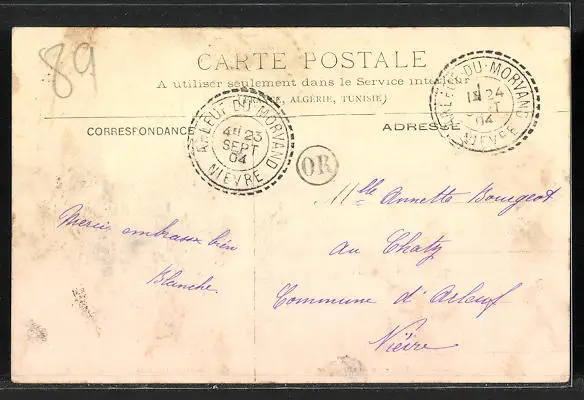 89
CARTE POSTALE
A utiliser seulement dans le Service intérieur
(FRANCE, ALGÉRIE, TUNISIE)
CORRESPONDANCE
ADRESSE
ARLEUF-DU-MORVAND
4E 23
SEPT
04
NIEVRE
ARLEUF-DU-MORVAND
1E 24
SEPT
04
NIEVRE
OR
Merci, embrasse bien
Blanche.
Mlle Annette Bourgeot
au Chatz
Commune d'Arleuf
Nièvre